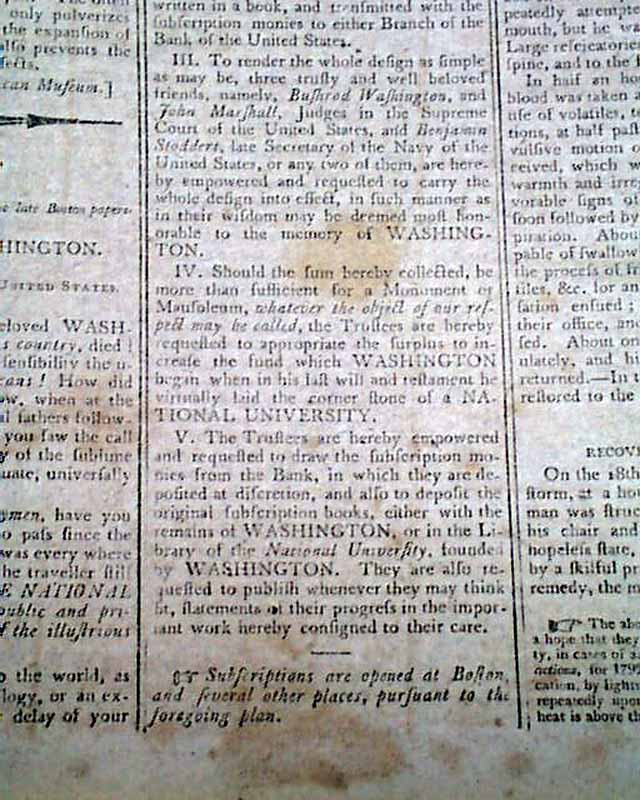 only pulverizes
the expansion of
also prevents the
fects.
can Museum.]
late Boston papers.
HINGTON.
UNITED STATES.
eloved WASH-
s country, died!
sensibility the
cans! How did
ow, when at the
al fathers follow-
you saw the call
y of the sublime
uate, universally
ymen, have you
o pass since the
was every where
he traveller still
E NATIONAL
public and pri-
f the illustrious
o the world, as
logy, or an ex-
r delay of your
written in a book, and transmitted with the
subscription monies to either Branch of the
Bank of the United States.
III. To render the whole design as simple
as may be, three trusty and well beloved
friends, namely, Bushrod Washington, and
John Marshall, Judges in the Supreme
Court of the United States, and Benjamin
Stoddert, late Secretary of the Navy of the
United States, or any two of them, are here-
by empowered and requested to carry the
whole design into effect, in such manner as
in their wisdom may be deemed most hon-
orable to the memory of WASHING-
TON.
IV. Should the sum hereby collected, be
more than sufficient for a Monument or
Mausoleum, whatever the object of our res-
pect may be called, the Trustees are hereby
requested to appropriate the surplus to in-
crease the fund which WASHINGTON
began when in his last will and testament he
virtually laid the corner stone of a NA-
TIONAL UNIVERSITY.
V. The Trustees are hereby empowered
and requested to draw the subscription mo-
nies from the Bank, in which they are de-
posited at discretion, and also to deposit the
original subscription books, either with the
remains of WASHINGTON, or in the Li-
brary of the National University, founded
by WASHINGTON. They are also re-
quested to publish whenever they may think
fit, statements of their progress in the impor-
tant work hereby consigned to their care.
☞ Subscriptions are opened at Boston,
and several other places, pursuant to the
foregoing plan.
peatedly attempte
mouth, but he wa
Large
spine, and to the
In half an ho
blood was taken a
use of volatiles, t
tions, at half pas
vulsive motion o
ceived, which w
warmth and irre
vorable signs of
soon followed by
piration. Abou
pable of swallow
the process of fr
tiles, &c. for an
sation ensued
their office, and
sed. About on
ulately, and h
returned.—In t
restored to the
RECOVE
On the 18th
storm, at a ho
man was struc
his chair and
hopeless state,
by a skilful pr
remedy, the m
☞ The abo
a hope that they
ty, in cases of a
actions, for 1792
cation, by lightn
repeatedly upon
heat is above th